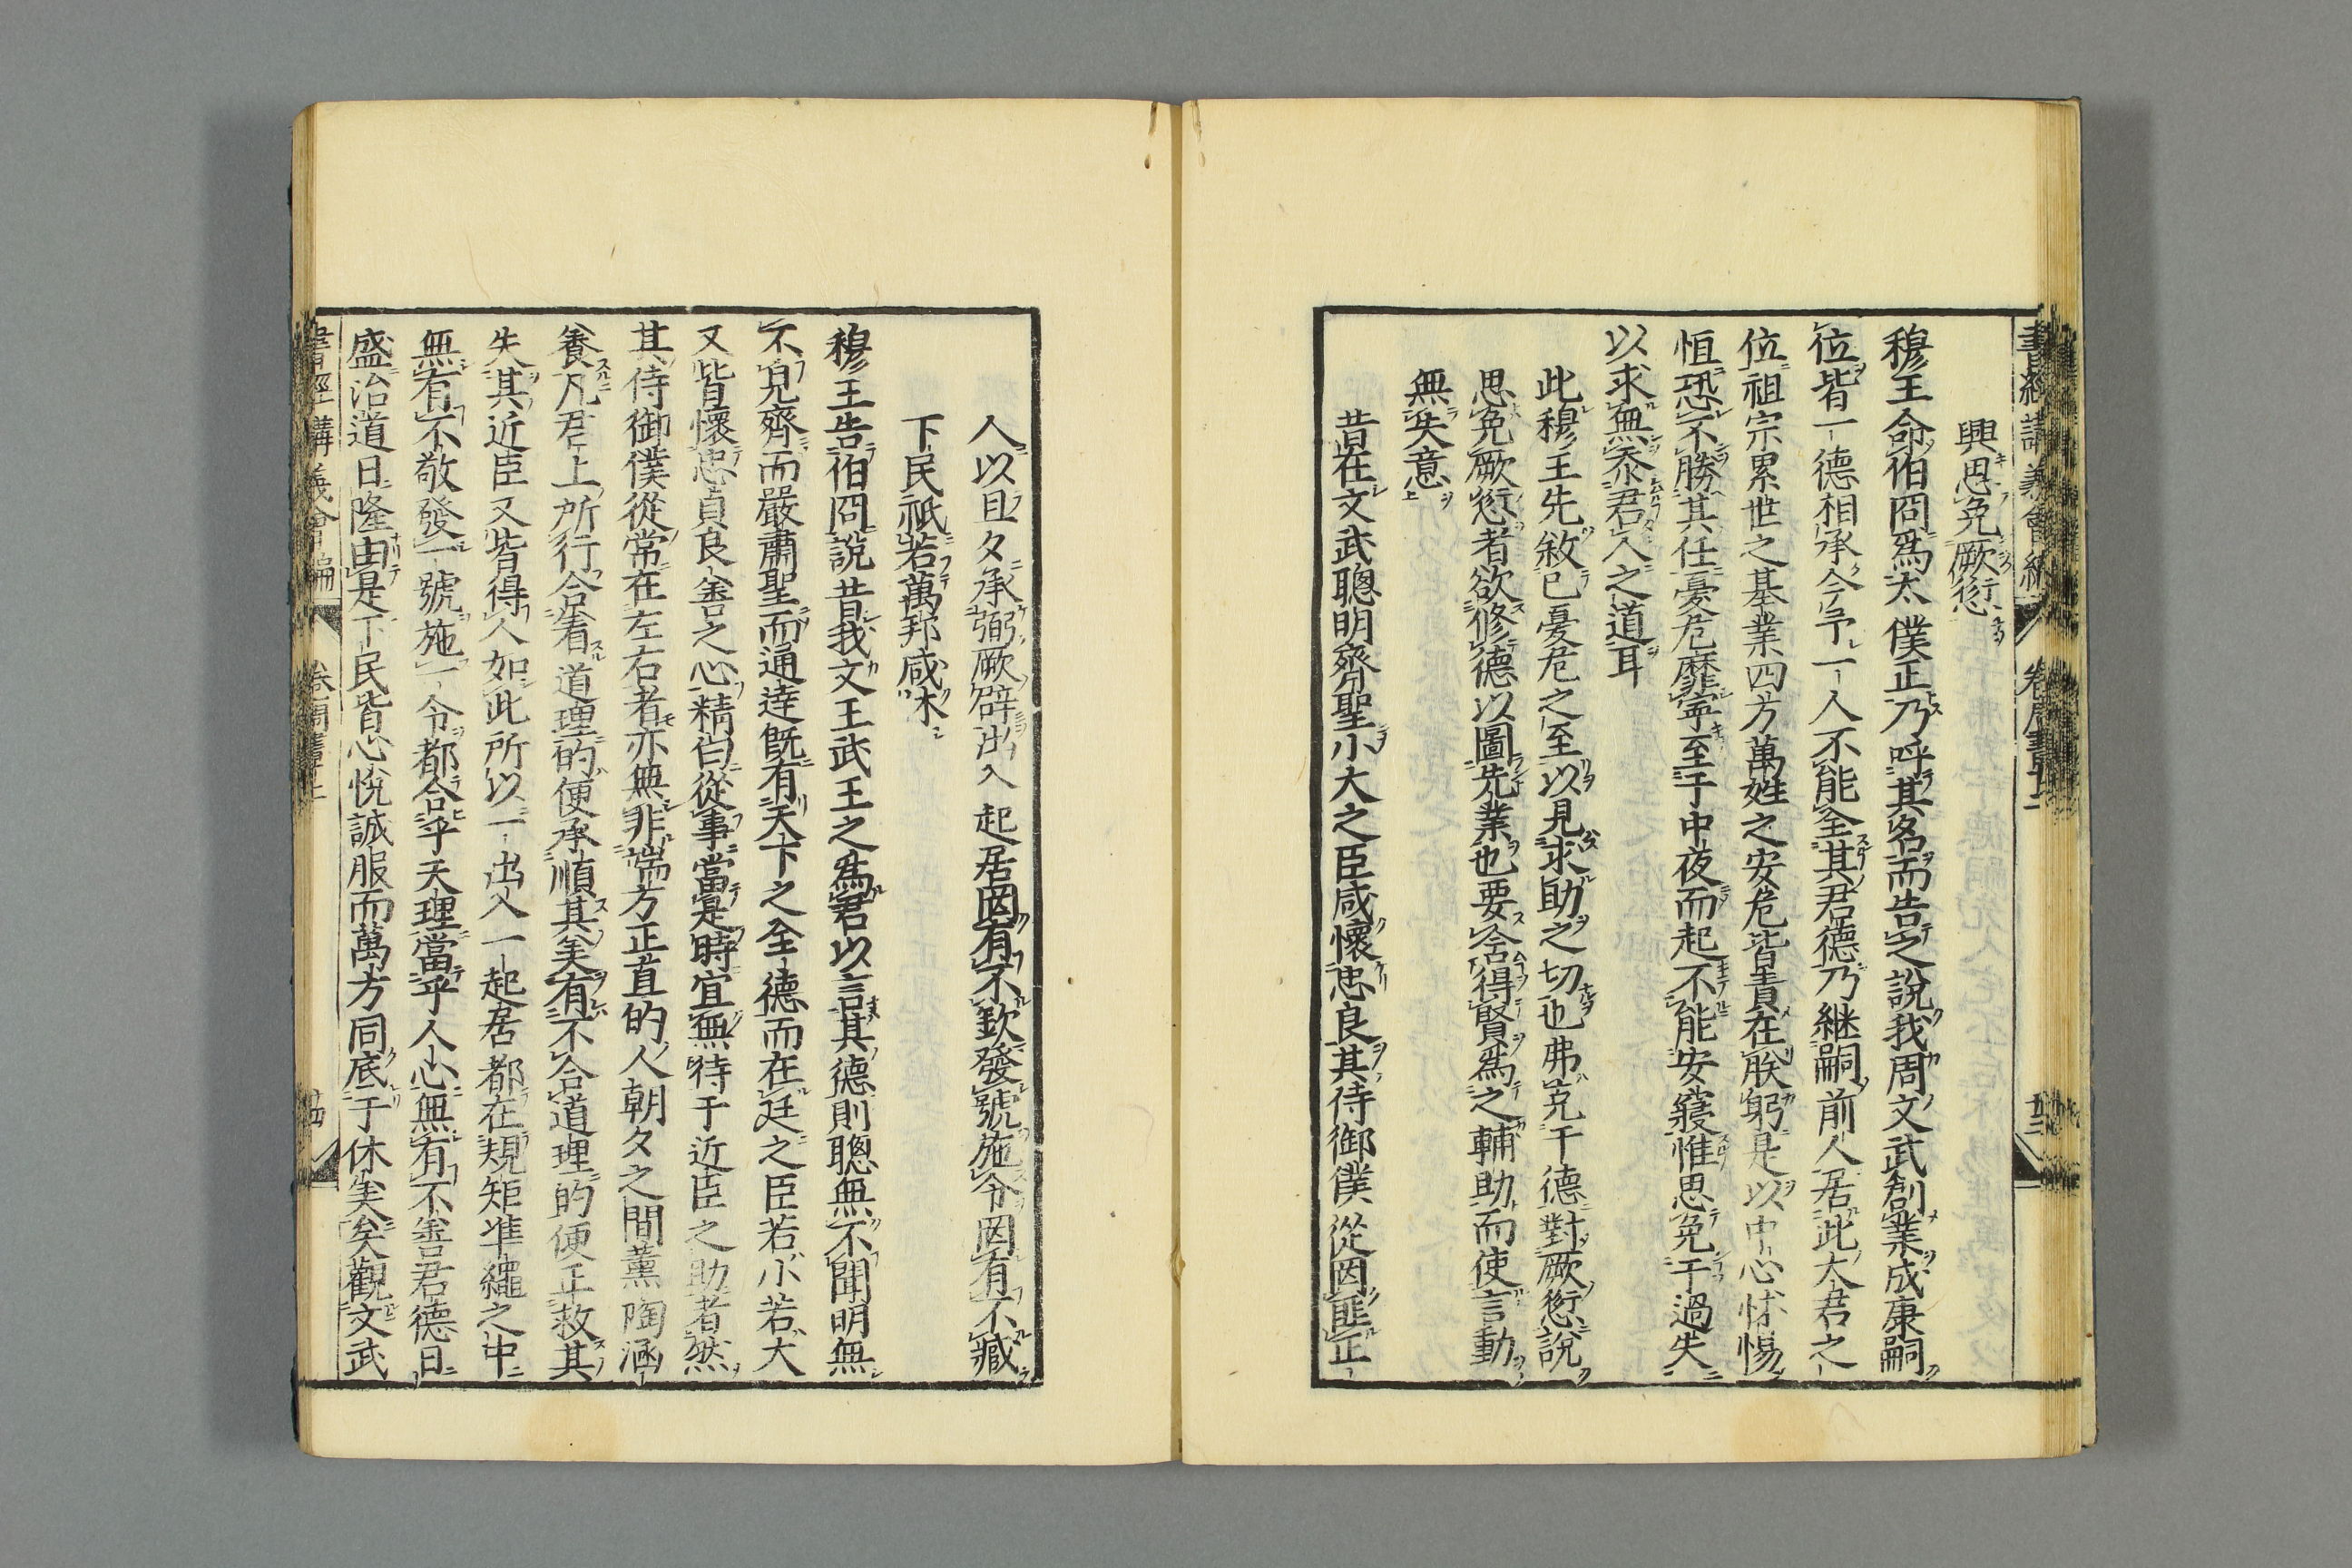 興思免厥愆
穆王命伯冏爲太僕正乃呼其名而告之說我周文武創業成康嗣
位皆一德相承今予一人不能全其君德乃継嗣前人居此大君之
位祖宗累世之基業四方萬姓之安危皆責在朕躬是以中心怵惕
恒恐不勝其任憂危靡寧至于中夜而起不能安寢惟思免于過失
以求無忝君人之道耳
此穆王先敘已憂危之至以見求助之切也弗克于德對厥愆說
思免厥愆者欲修德以圖先業也要含得賢爲之輔助而使言動
無失意
昔在文武聰明齊聖小大之臣咸懷忠良其侍御僕從罔匪正
人以旦夕承弼厥辟出入起居罔有不欽發號施令罔有不臧
下民祇若萬邦咸休
穆王告伯冏說昔我文王武王之爲君以言其德則聰無不聞明無
不見齊而嚴肅聖而通達既有天下之全德而在廷之臣若小若大
又皆懷忠貞良善之心精白從事當是時宜無待于近臣之助者然
其侍御僕從常在左右者亦無非端方正直的人朝夕之間薰陶涵
養凡君上所行合着道理的便承順其美有不合道理的便正救其
失其近臣又皆得人如此所以一出入一起居都在規矩準繩之中
無有不敬發一號施一令都合乎天理當乎人心無有不善君德日
盛治道日隆由是下民皆心悅誠服而萬方同底于休美矣觀文武
書經講義會編 卷 周書